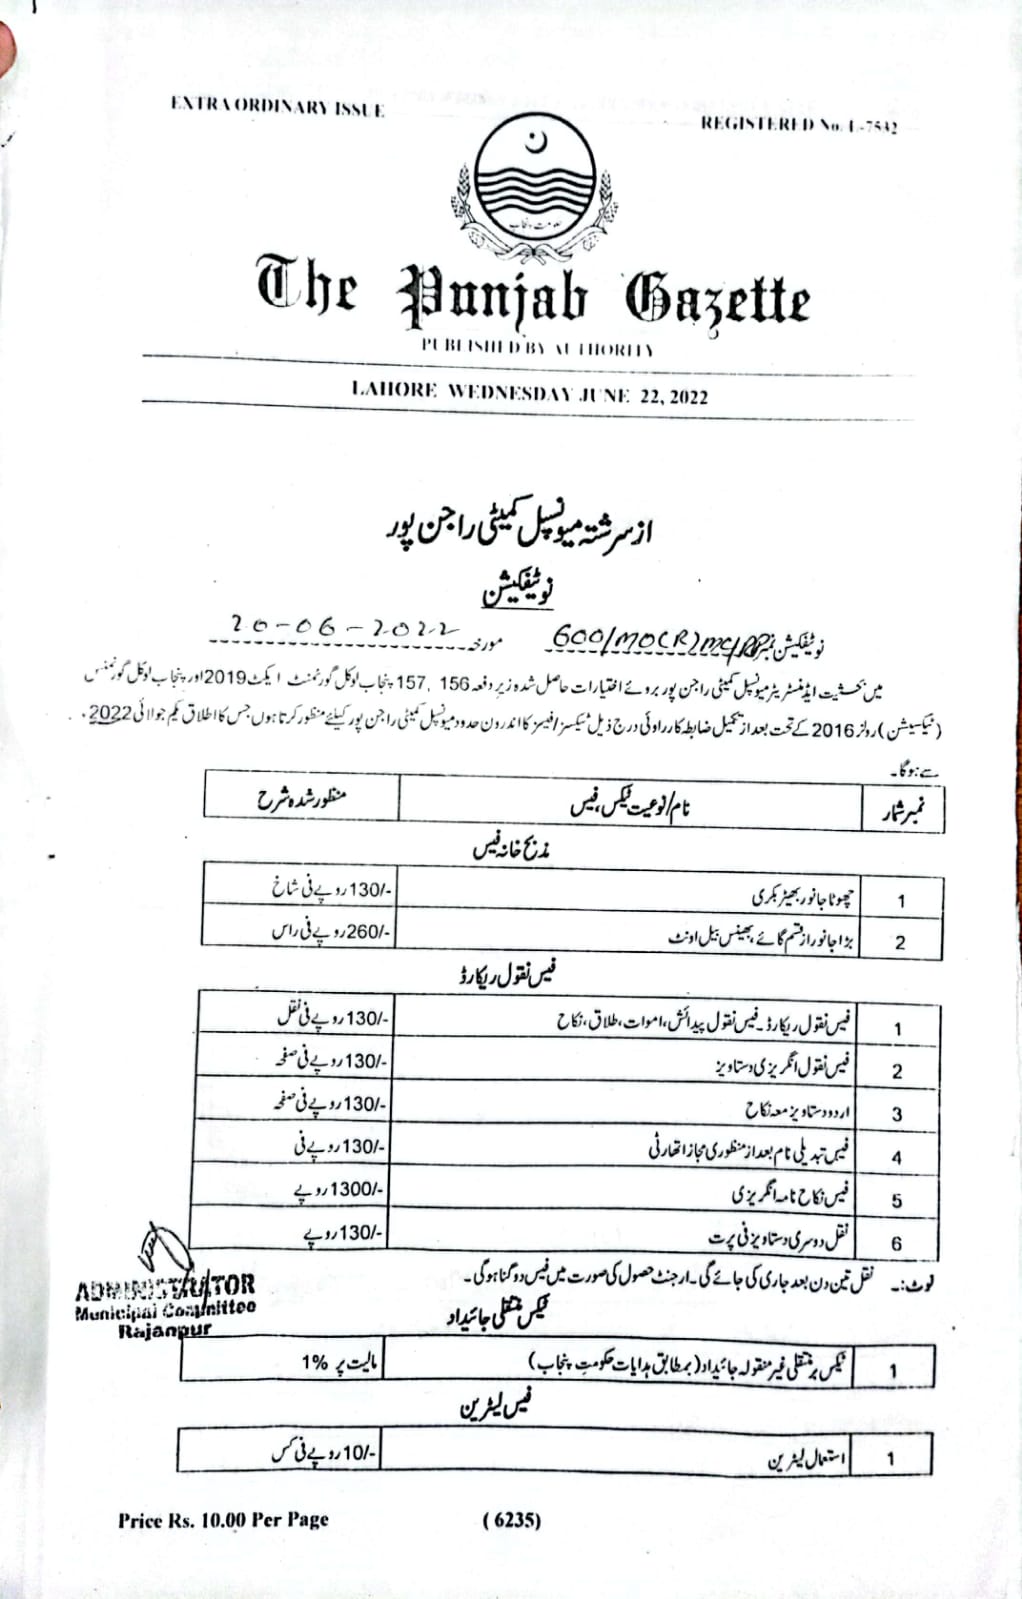 EXTRA ORDINARY ISSUE
REGISTERED No. L-7532
حکومت پنجاب
The Punjab Gazette
PUBLISHED BY AUTHORITY
LAHORE WEDNESDAY JUNE 22, 2022
از سرشتہ میونسپل کمیٹی راجن پور
نوٹیفکیشن
نوٹیفکیشن نمبر 600/MO(R)MC/RP مورخہ 20-06-2022
میں بحثیت ایڈمنسٹریٹر میونسپل کمیٹی راجن پور بروئے اختیارات حاصل شدہ زیر دفعہ 156، 157 پنجاب لوکل گورنمنٹ ایکٹ 2019 اور پنجاب لوکل گورنمنٹس
(ٹیکسیشن) رولز 2016 کے تحت بعد از تکمیل ضابطہ کارروائی درج ذیل ٹیکسز/فیسز کا اندرون حدود میونسپل کمیٹی راجن پور کیلئے منظور کرتا ہوں جس کا اطلاق یکم جولائی 2022،
سے ہو گا۔
نمبر شمار نام/نوعیت ٹیکس، فیس منظور شدہ شرح
مذبح خانہ فیس
1 چھوٹا جانور بھیڑ بکری 130/- روپے فی شاخ
2 بڑا جانور از قسم گائے، بھینس بیل اونٹ 260/- روپے فی راس
فیس نقول ریکارڈ
1 فیس نقول ریکارڈ۔ فیس نقول پیدائش، اموات، طلاق، نکاح 130/- روپے فی نقل
2 فیس نقول انگریزی دستاویز 130/- روپے فی صفحہ
3 اردو دستاویز معہ نکاح 130/- روپے فی صفحہ
4 فیس تبدیلی نام بعد از منظوری مجاز اتھارٹی 130/- روپے فی
5 فیس نکاح نامہ انگریزی 1300/- روپے
6 نقل دوسری دستاویز فی پرت 130/- روپے
نوٹ:۔ نقل تین دن بعد جاری کی جائے گی۔ ارجنٹ حصول کی صورت میں فیس دو گنا ہو گی۔
ADMINISTRATOR
Municipal Committee
Rajanpur
ٹیکس منتقلی جائیداد
1 ٹیکس بر منتقلی غیر منقولہ جائیداد (بمطابق ہدایات حکومت پنجاب) مالیت پر 1%
فیس لیٹرین
1 استعمال لیٹرین 10/- روپے فی کس
Price Rs. 10.00 Per Page
(6235)